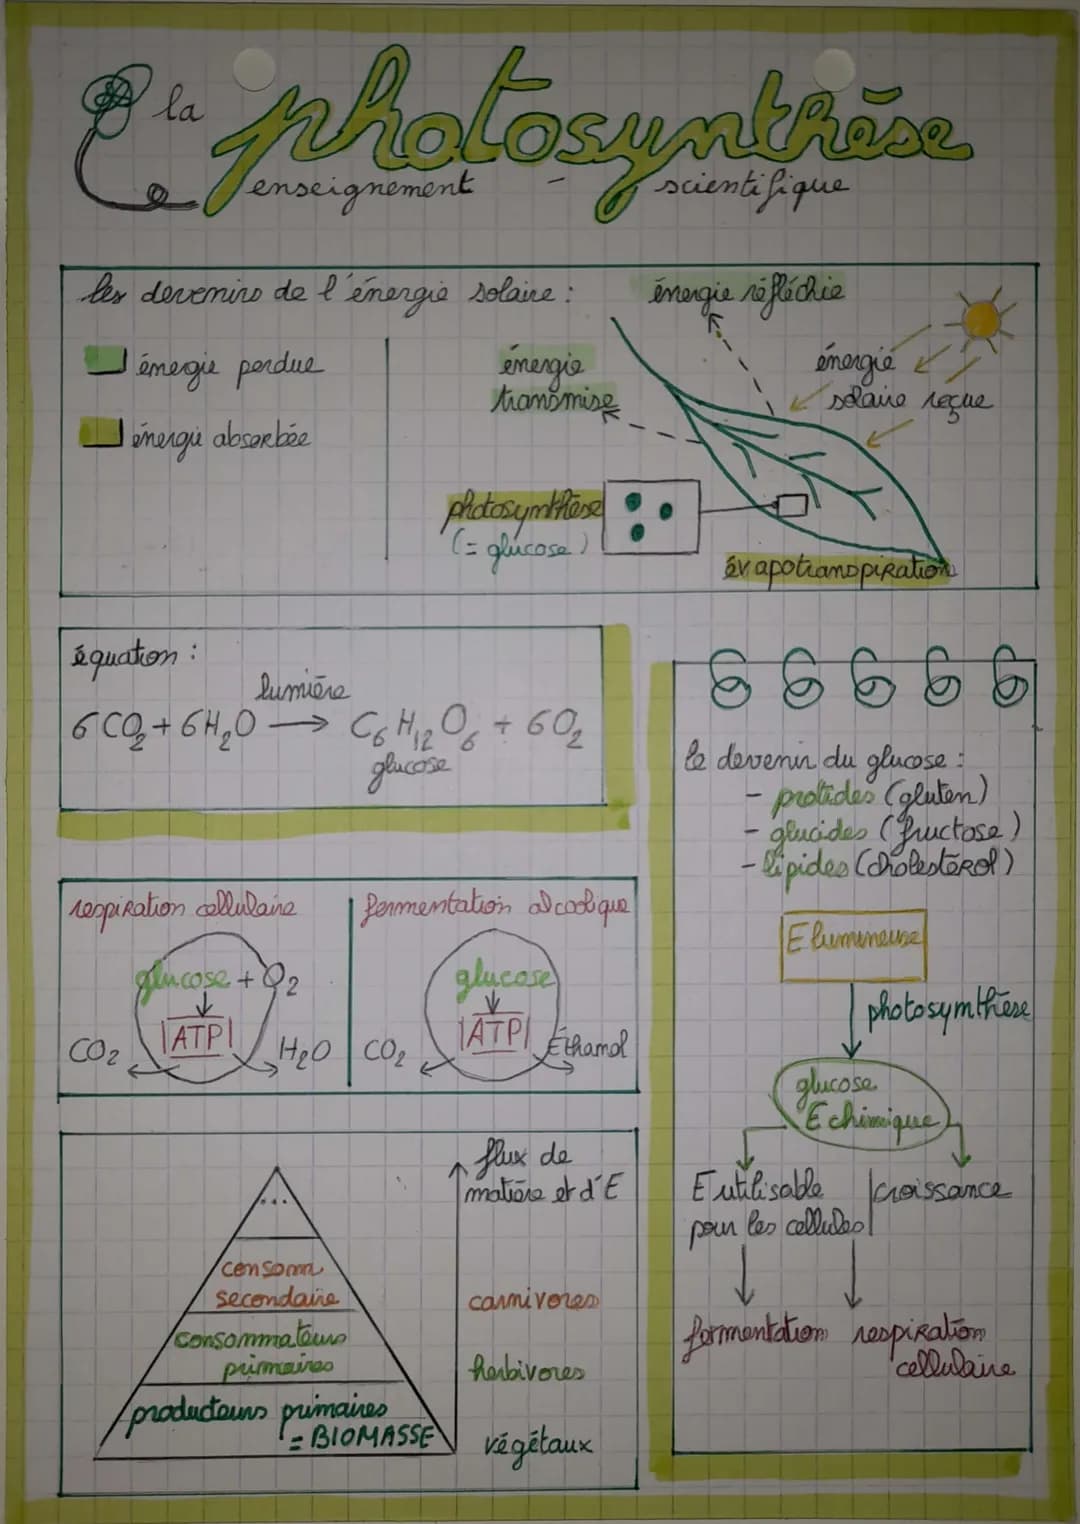 la photosynthèse
enseignement - scientifique
les devenirs de l'énergie solaire :
énergie perdue
énergie absorbée
énergie réfléchie
énergie
transmise
énergie
solaire reçue
photosynthèse
(= glucose)
évapotranspiration
équation :
lumière
6 CO₂ + 6 H₂O → C₆ H₁₂ O₆ + 6 O₂
glucose
respiration cellulaire
glucose + O₂
ATP
CO₂
H₂O
fermentation alcoolique
glucose
ATP
CO₂
Éthanol
flux de
matière et d'E
...
consomm
secondaire
carnivores
consommateurs
primaires
herbivores
producteurs primaires
= BIOMASSE
végétaux
le devenir du glucose :
- protides (gluten)
- glucides (fructose)
- lipides (cholestérol)
E lumineuse
photosynthèse
glucose
E chimique
E utilisable
pour les cellules
croissance
fermentation
respiration
cellulaire